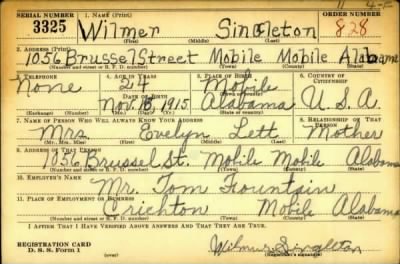 11 4-F
SERIAL NUMBER 1. NAME (Print) ORDER NUMBER
3325 Wilmer Singleton 828
(First) (Middle) (Last)
2. ADDRESS (Print)
1056 Brussel Street Mobile Mobile Alabama
(Number and street or R. F. D. number) (Town) (County) (State)
3. TELEPHONE 4. AGE IN YEARS 5. PLACE OF BIRTH 6. COUNTRY OF CITIZENSHIP
None 24 Mobile
DATE OF BIRTH (Town or county)
Nov. 18, 1915 Alabama U.S.A.
(Exchange) (Number) (Mo.) (Day) (Yr.) (State or country)
7. NAME OF PERSON WHO WILL ALWAYS KNOW YOUR ADDRESS 8. RELATIONSHIP OF THAT PERSON
Mrs. Evelyn Lett Mother
(Mr., Mrs., Miss) (First) (Middle) (Last)
9. ADDRESS OF THAT PERSON
1056 Brussel St. Mobile Mobile Alabama
(Number and street or R. F. D. number) (Town) (County) (State)
10. EMPLOYER'S NAME
Mr. Tom Fountain
11. PLACE OF EMPLOYMENT OR BUSINESS
Crichton Mobile Alabama
(Number and street or R. F. D. number) (Town) (County) (State)
I AFFIRM THAT I HAVE VERIFIED ABOVE ANSWERS AND THAT THEY ARE TRUE.
REGISTRATION CARD
D. S. S. Form 1 (over) Wilmer Singleton
(Registrant's signature)